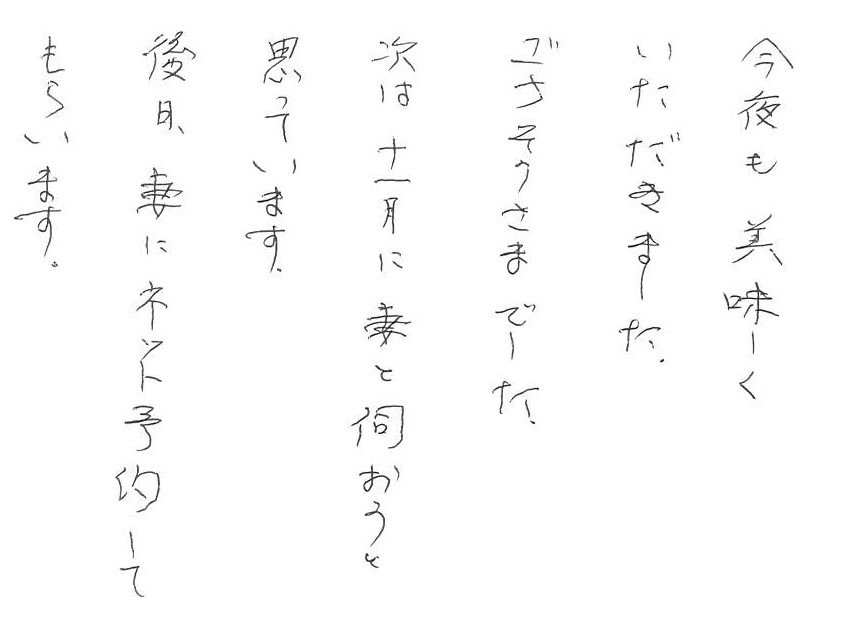 今夜も美味しく
いただきました。
ごちそうさまでした。
次は十一月に妻と伺おうと
思っています。
後日、妻にネット予約して
もらいます。